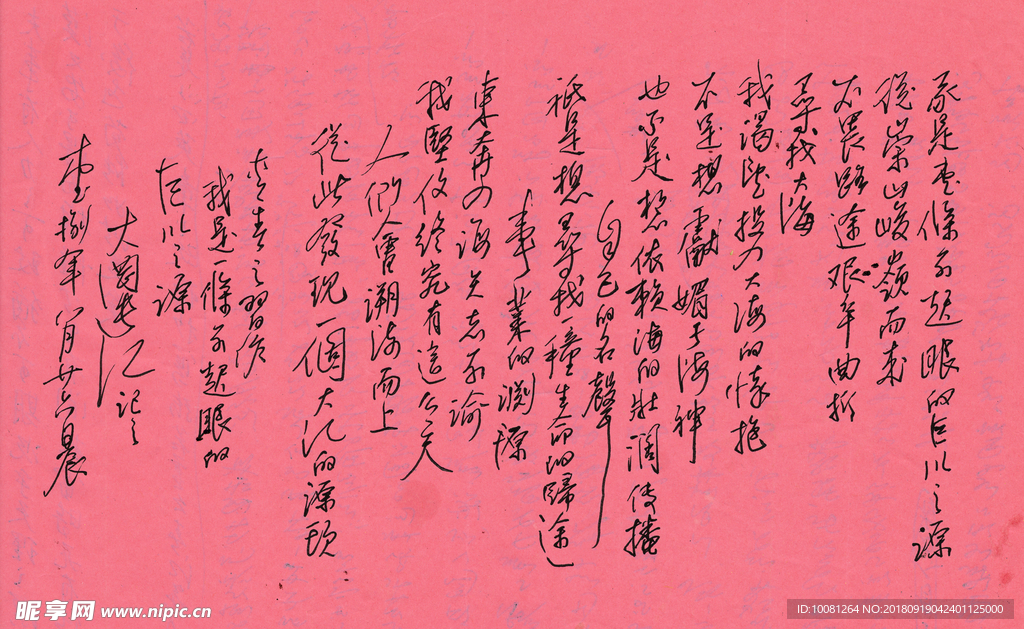 我是壹條不起眼的巨川之源
從崇山峻嶺而來
不畏路途艰辛曲折
尋找大海
我渴望投入大海的懷抱
不是想獻媚于海神
也不是想依賴海的壯濶传播
自己的名聲
祗是想尋找一種生命的歸途
事業的渊源
東奔如海矢志不渝
我堅信终究有這么一天
人們會溯流而上
從此發现一個大江的源頭
我是一條不起眼的
巨川之源
大渡江 记之
壹捌年八月廿六日晨
昵享网 www.nipic.cn
ID:10081264 NO:20180919042401125000